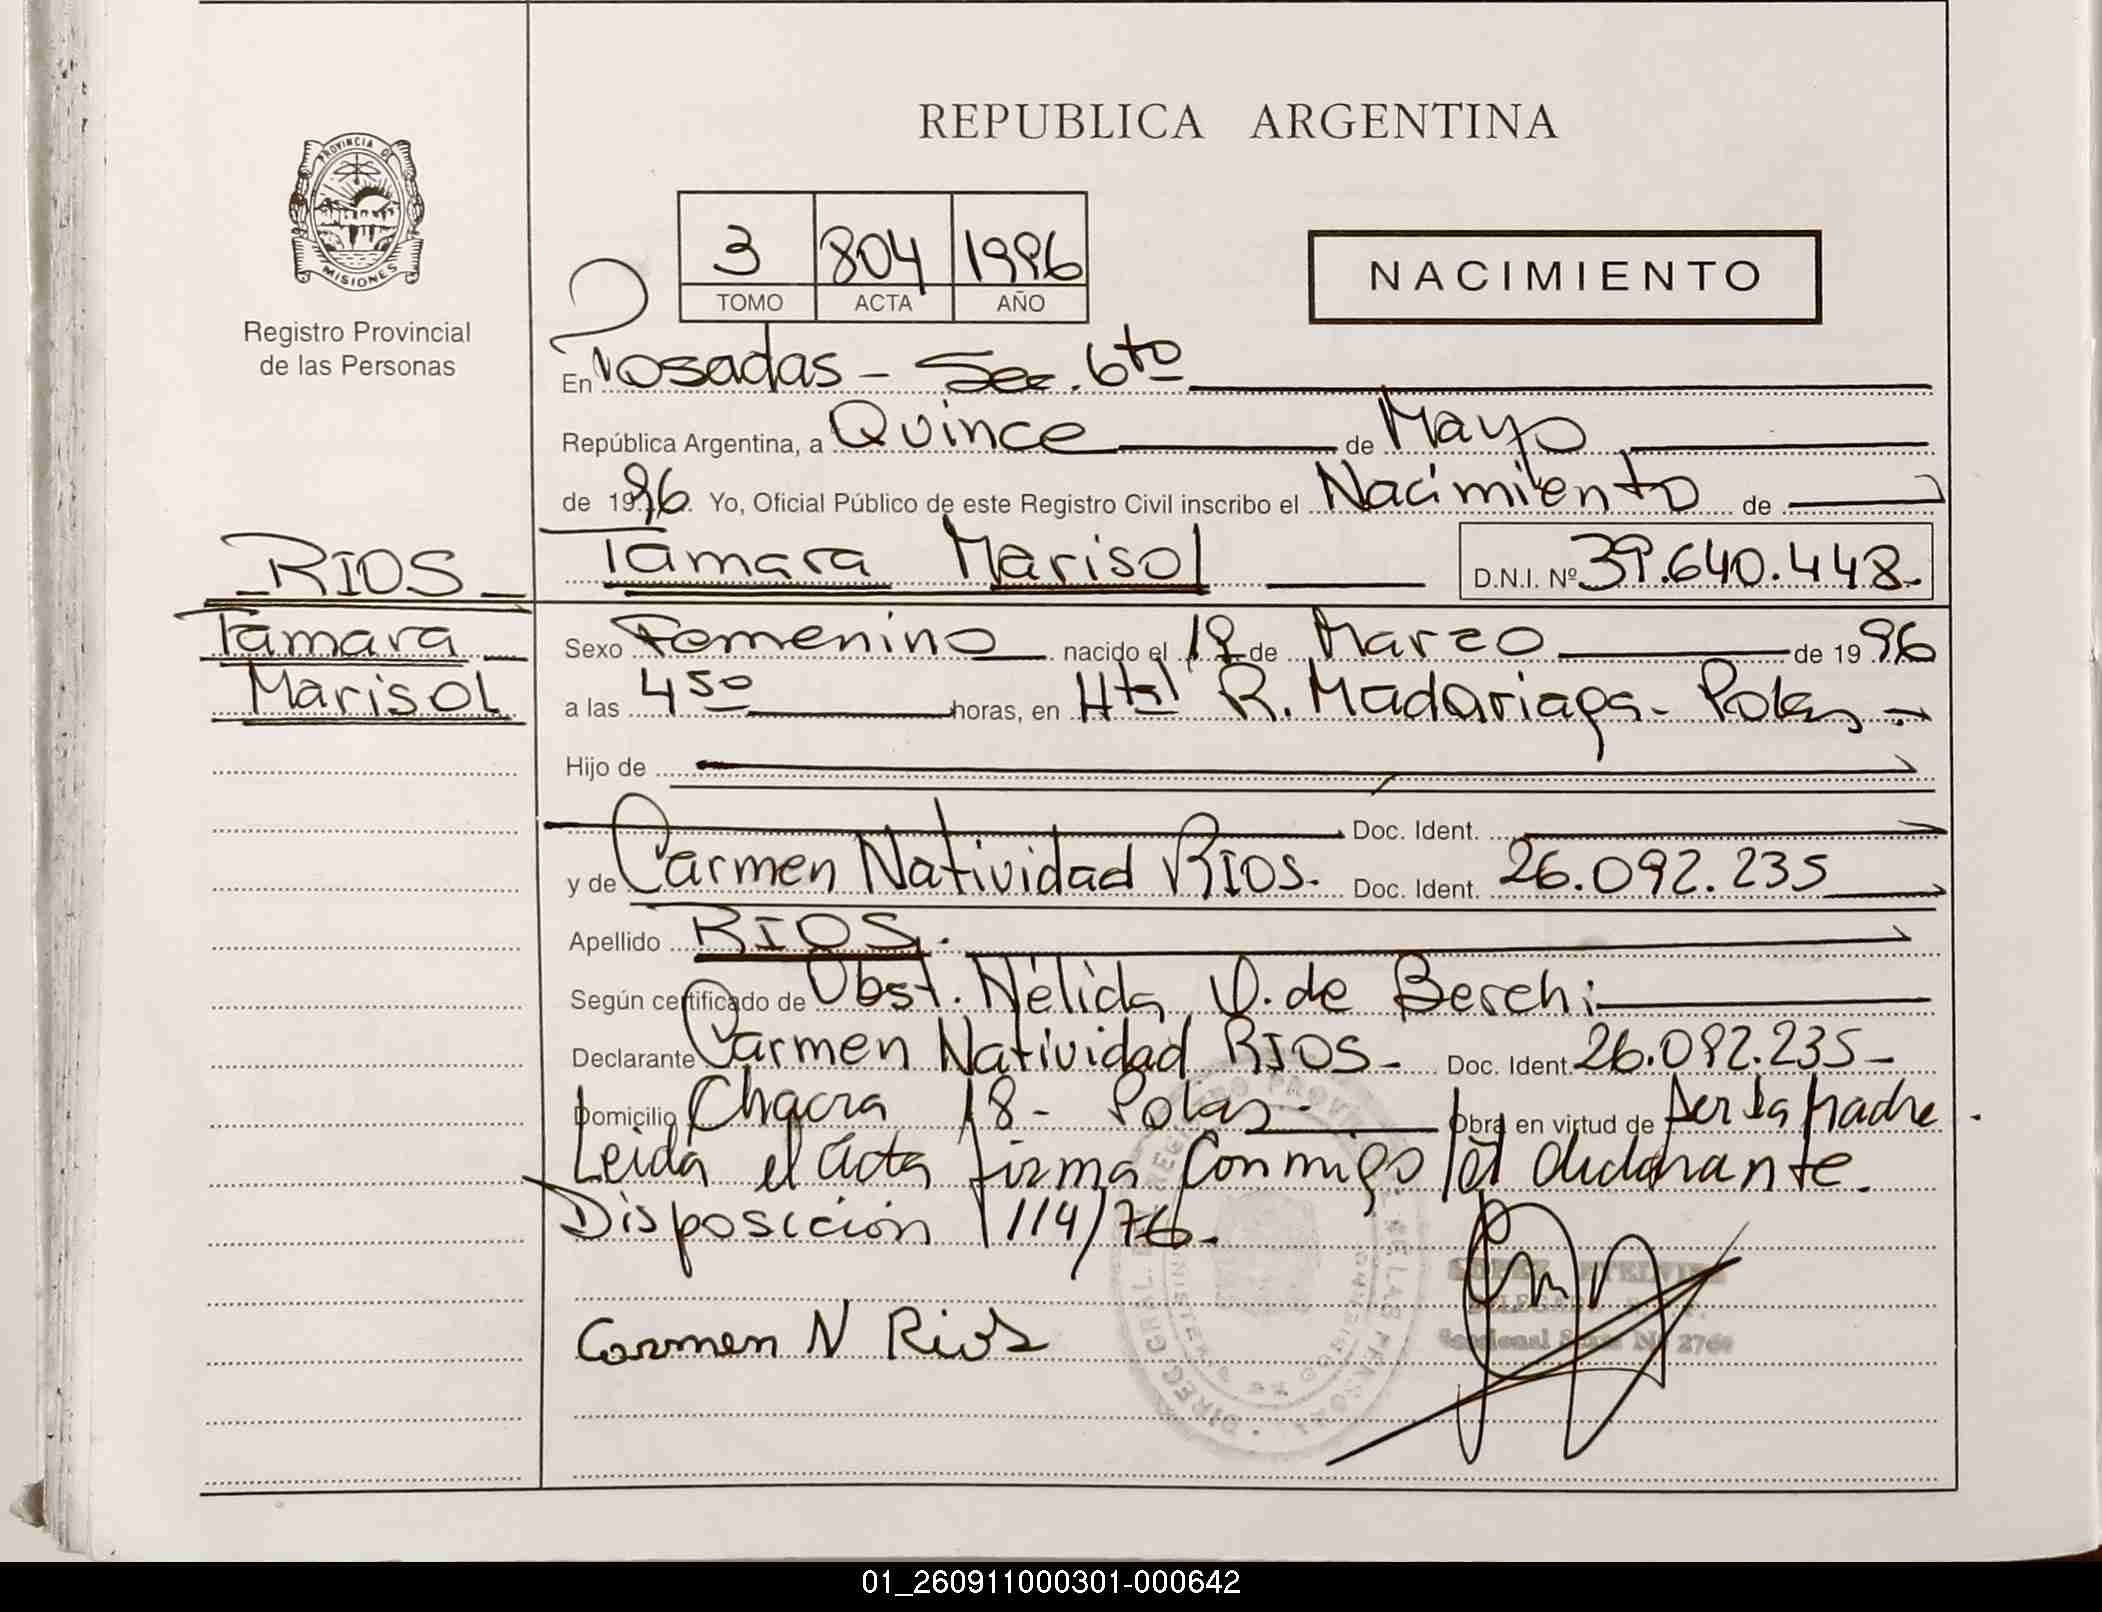 REPUBLICA ARGENTINA
PROVINCIA DE
MISIONES
Registro Provincial
de las Personas
3 804 1996
TOMO ACTA AÑO
NACIMIENTO
En Posadas - Sec. 6to
República Argentina, a Quince de Mayo
de 1996. Yo, Oficial Público de este Registro Civil inscribo el Nacimiento de
RIOS
Tamara
Marisol
Tamara Marisol D.N.I. Nº 39.640.448.-
Sexo Femenino nacido el de Marzo de 1996
a las 4 50 horas, en Htal R. Madariaga - Pdas -
Hijo de
Doc. Ident.
y de Carmen Natividad RIOS. Doc. Ident. 26.092.235
Apellido RIOS.
Según certificado de Obst. Nélida de Berchi
Declarante Carmen Natividad RIOS - Doc. Ident. 26.092.235 -
Domicilio Chacra 18 - Pdas - Obra en virtud de ser la madre.
Leida el acta firma Conmigo declarante.
Disposición 1114/76.
Carmen N Rios
01_260911000301-000642